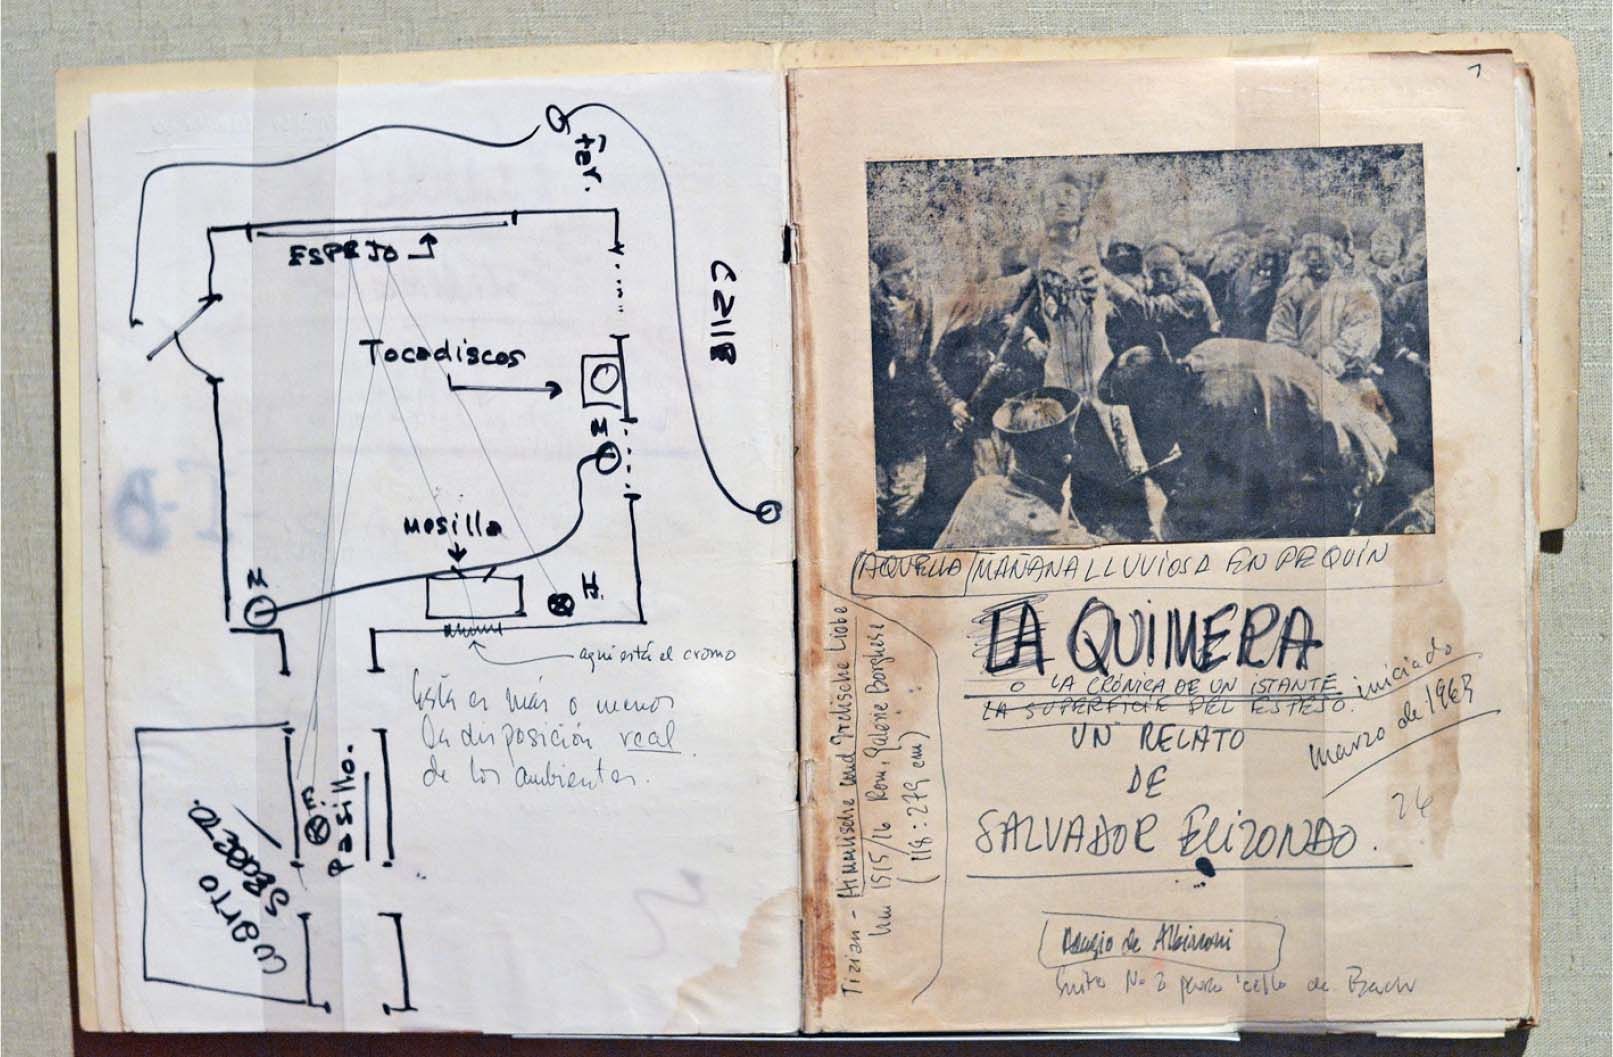 Ter.
ESPEJO
Tocadiscos
CALLE
M
Mesilla
M
H.
aquí está el cromo
Esta es más o menos
la disposición real
de los ambientes.
E.
Pasillo.
CUARTO
SECRETO.
1
AQUELLA MAÑANA LLUVIOSA EN PEQUIN
LA QUIMERA
O LA CRÓNICA DE UN ISTANTE
LA SUPERFICIE DEL ESPEJO.
iniciado
marzo de 1963
UN RELATO
DE
SALVADOR ELIZONDO.
24
Tizian - Himmlische und Irdische Liebe
um 1515/16 Rom, Galerie Borghese
(118:279 cm)
Adagio de Albinoni
Suite No 2 para 'cello de Bach